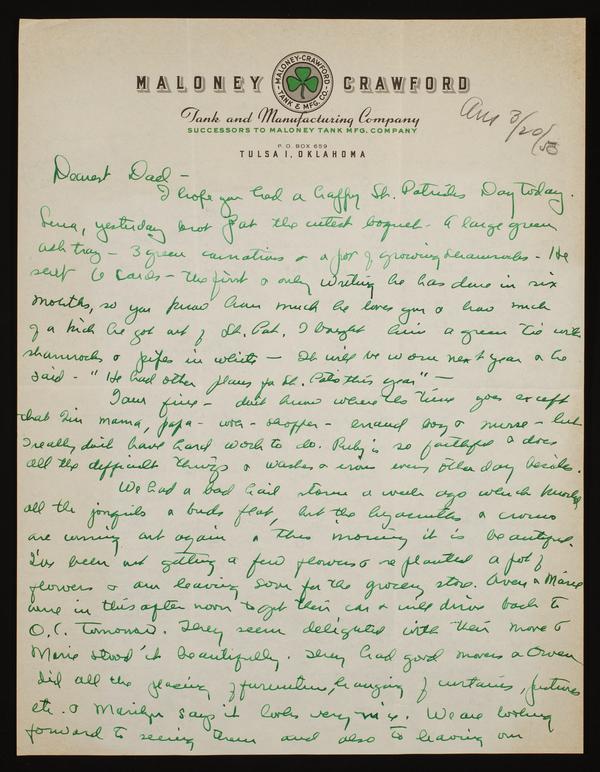 MALONEY CRAWFORD
MALONEY-CRAWFORD TANK & MFG. CO.
Tank and Manufacturing Company
SUCCESSORS TO MALONEY TANK MFG. COMPANY
P. O. BOX 659
TULSA 1, OKLAHOMA
Ans 3/20/53
Dearest Dad -
I hope you had a happy St. Patricks Day today.
yesterday Pat the cutest boquet - a large green
ash tray - 3 green carnations & a pot of growing shamrocks - He
sent 6 cards - the first & only writing he has done in six
months, so you know how much he loves you & how much
of a kick he got out of St. Pat. I bought him a green tie with
shamrocks & pipes in white - It will be worn next year as he
said - "He had other plans for St. Pats this year" -
I am fine - don't know where the time goes except
that I'm mama, papa - - shopper - errand boy & nurse - but
I really don't have hard work to do. Ruby is so faithful & does
all the difficult things & washes & irons every other day besides.
We had a bad hail storm a week ago which knocked
all the jonquils & buds flat, but the hyacinths & crocus
are coming out again & this morning it is beautiful.
I've been out getting a few flowers & replanted a pot of
flowers & am leaving soon for the grocery store. Owen & Marie
were in this afternoon to get their car & will drive back to
O.C. tomorrow. They seem delighted with their move &
Marie stood it beautifully. They had good movers & Owen
did all the placing of furniture, hanging of curtains, pictures
etc. & Marilyn says it looks very nice. We are looking
forward to seeing them and also to having our